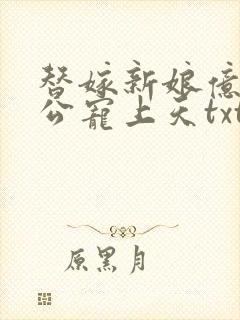 替嫁新娘億
公寵上天txt
原黑月